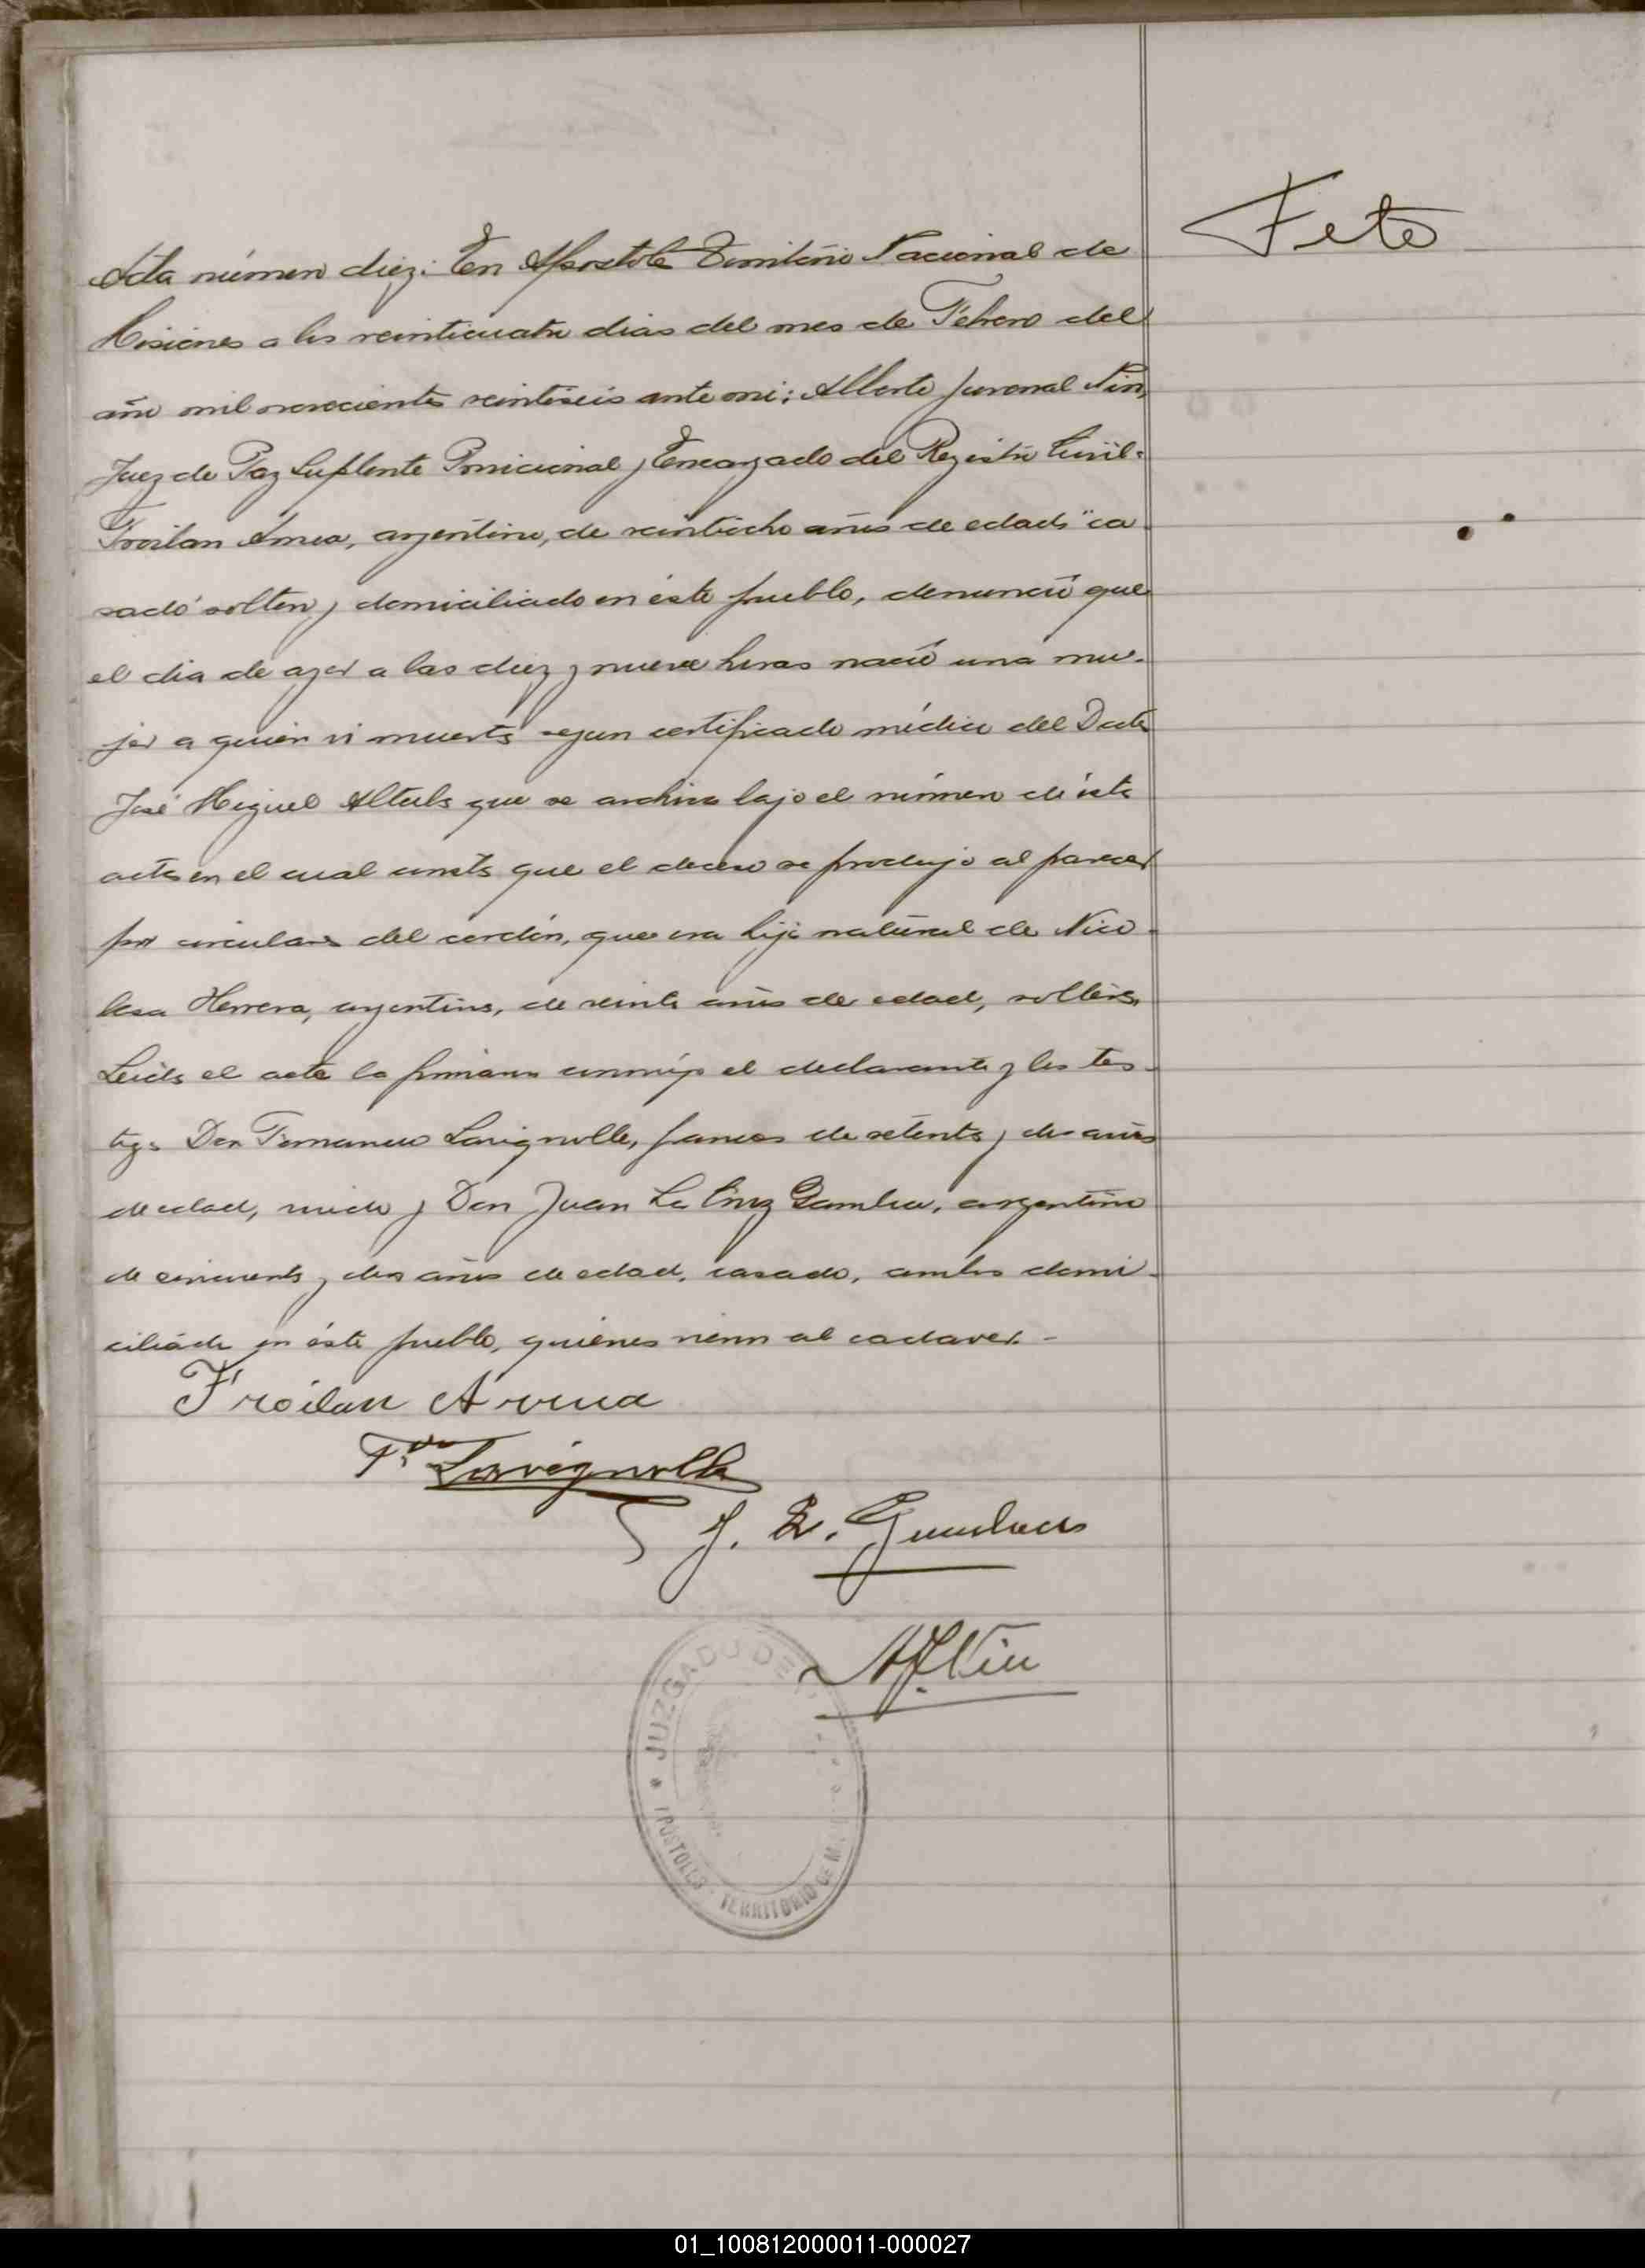 Feto
Acta número diez: En Apostoles Territorio Nacional de
Misiones a los veinticuatro dias del mes de Febrero del
año mil novecientos veintiseis ante mi: Alberto Juvenal Nin,
Juez de Paz Suplente Provicional y Encargado del Registro Civil:
Froilan, argentino, de veintiocho años de edad "ca
sado" soltero y domiciliado en éste pueblo, denunció que
el dia de ayer a las diez y nueve horas nació una mu-
jer a quien vi muerta segun certificado médico del Doctor
José Miguel que se archiva bajo el número de ésta
acta en el cual consta que el deceso se produjo al parecer
por circulares del cordón, que era hija natural de Nico-
lasa Herrera, argentina, de veinte años de edad, soltera.
Leida el acta la firmaron conmigo el declarante y los tes-
tigos Don Fernando Lavignolle, frances de setenta y dos años
de edad, viudo y Don Juan La Cruz, argentino
de cincuenta y dos años de edad, casado, ambos domi-
ciliados en éste pueblo, quienes vieron al cadaver. -
Froilan
Lavignolle
J. L.
A J. Nin
JUZGADO DE
APOSTOLES - TERRITORIO DE M
01_100812000011-000027